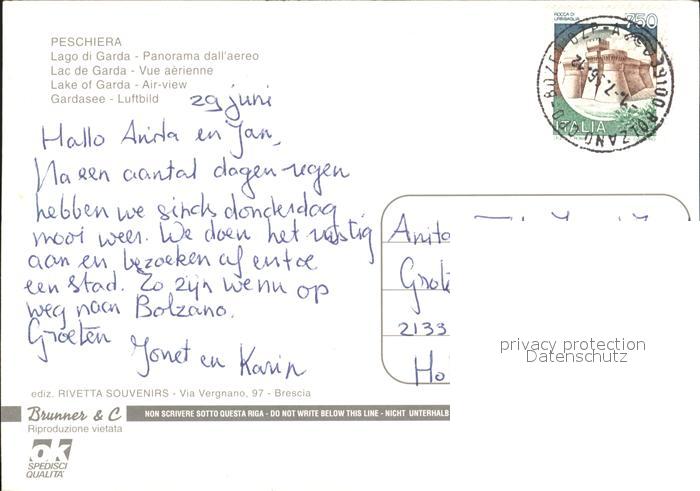 PESCHIERA
Lago di Garda - Panorama dall'aereo
Lac de Garda - Vue aèrienne
Lake of Garda - Air-view
Gardasee - Luftbild
29 juni
Hallo Anita en Jan,
Na een aantal dagen regen
hebben we sinds donderdag
mooi weer. We doen het rustig
aan en bezoeken af en toe
een stad. Zo zijn we nu op
weg naar Bolzano.
Groeten
Jonet en Karin
ROCCA DI
URBISAGLIA
750
ITALIA
39100 BOLZANO
Anita
Grote
2133
Ho
privacy protection
Datenschutz
ediz. RIVETTA SOUVENIRS - Via Vergnano, 97 - Brescia
Brunner & C
NON SCRIVERE SOTTO QUESTA RIGA - DO NOT WRITE BELOW THIS LINE - NICHT UNTERHALB
Riproduzione vietata
ok
SPEDISCI
QUALITA'